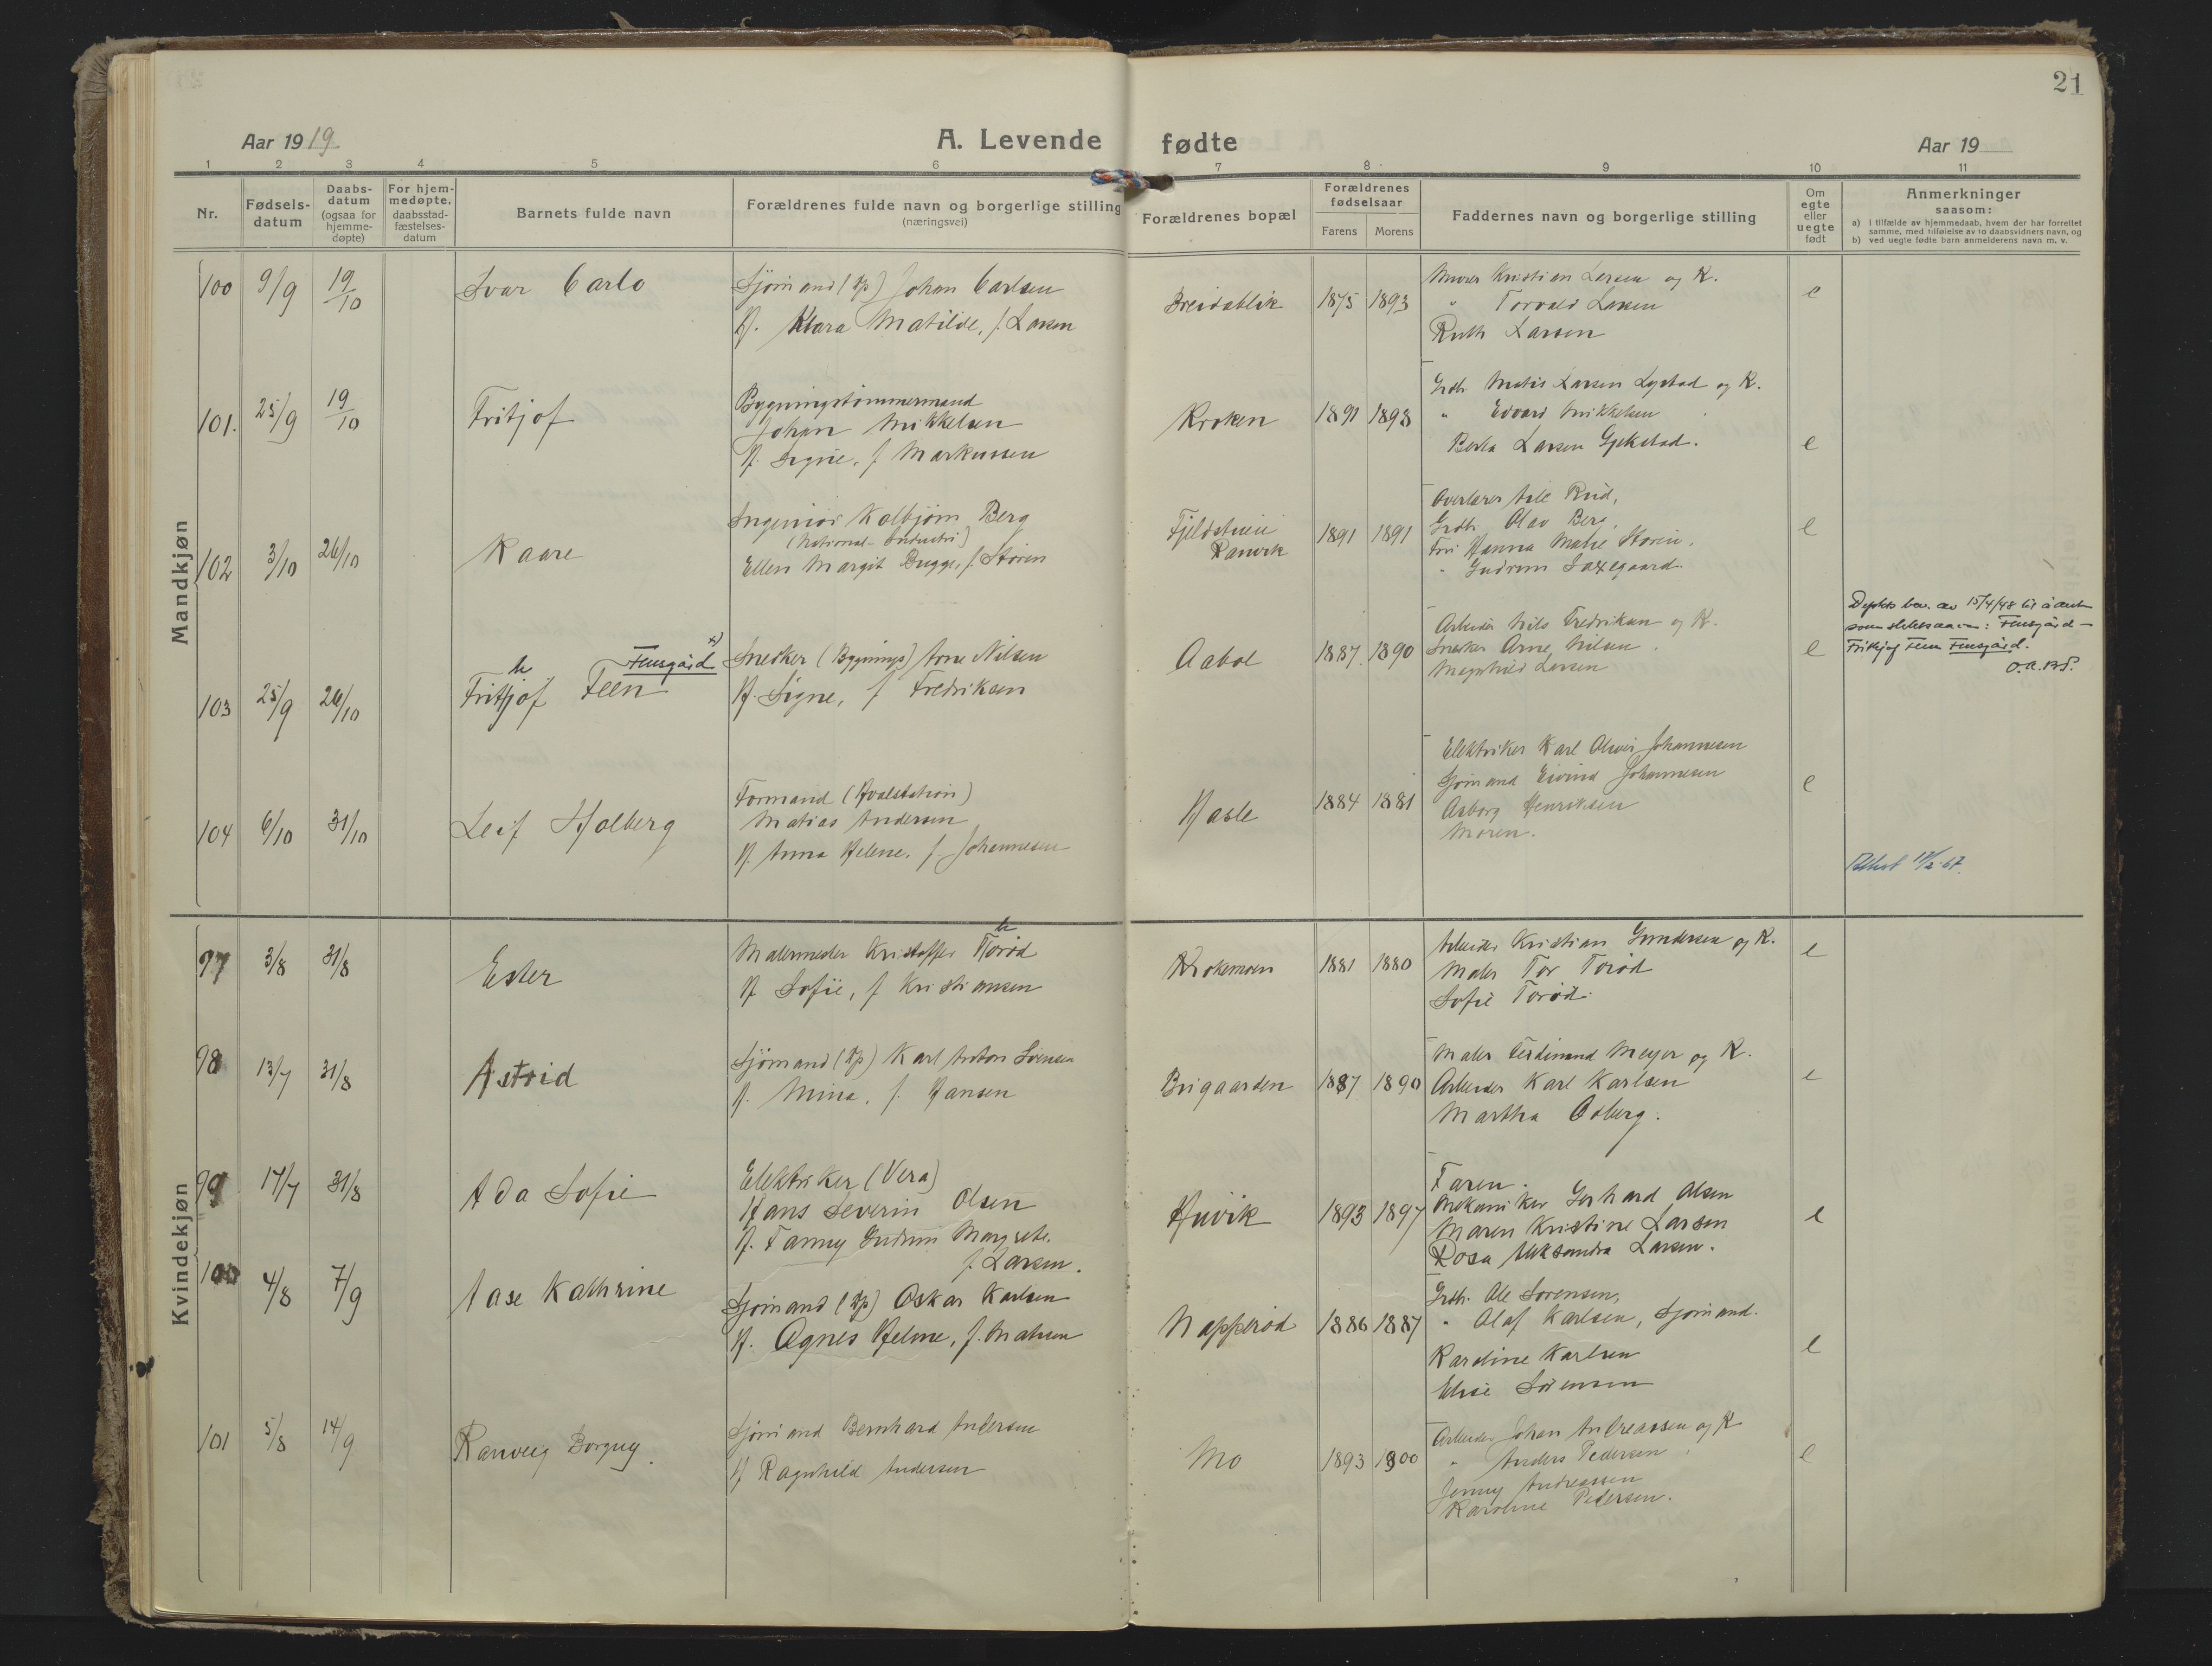 21
Aar 1919
A. Levende fødte
Aar 19
1 2 3 4 5 6 7 8 9 10 11
Nr.
Fødsels-
datum
Daabs-
datum
(ogsaa for
hjemme-
døpte)
For hjem-
medøpte,
daabsstad-
fæstelses-
datum
Barnets fulde navn
Forældrenes fulde navn og borgerlige stilling
(næringsvei)
Forældrenes bopæl
Forældrenes
fødselsaar
Farens Morens
Faddernes navn og borgerlige stilling
Om
egte
eller
uegte
født
Anmerkninger
saasom:
a) i tilfælde av hjemmedaab, hvem der har forrettet
samme, med tilføielse av to daabsvidners navn, og
b) ved uegte fødte barn anmelderens navn m. v.
Mandkjøn
100 9/9 19/10 Ivar Carlo
Sjømand (Hp) Johan Carlsen
H. Klara Matilde, f. Larsen
Breidablik 1875 1893
Murer Kristian Larsen og K.
" Torvald Larsen
Ruth Larsen
e
101. 25/9 19/10 Fritjof
Bygningstømmermand
Johan Mikkelsen
H. Signe, f Markussen
Kroken 1891 1898
Grdb. Matis Larsen og K.
" Edvard Mikkelsen
Berta Larsen Gjekstad.
e
102 3/10 26/10 Kaare
Ingeniør Kolbjørn Berg
(National-Industri)
Ellen Margit Bugge, f. Støren
Ranvik 1891 1891
Overlærer Rud,
Grdb. Olav Berg,
Frk Hanna Marie Støren,
" Gudrun Saxegaard.
e
103 25/9 26/10 Frithjof Feen Fensgård x)
Snedker (Bygnings) Arne Nilsen
H. Signe, f Fredriksen
Aabol 1887 1890
Arbeider Nils Fredriksen og K.
Snedker Arne Nilsen.
Magnhild Larsen
e
Deptets bev. av 15/4/48 til å anta
som slektsnavn: Fensgård –
Frithjof Feen Fensgård.
104 6/10 31/10 Leif Holberg
Formand (Hvalstation)
Matias Andersen
H. Anna Helene, f. Johannesen
Hasle 1884 1881
Elektriker Karl Oliver Johannesen
Sjømand Eivind Johannesen
Asborg Henriksen
Moren.
e
Kvindekjøn
97 3/8 31/8 Ester
Malermester Kristoffer Thorød
H Sofie, f Kristiansen
Krokemoen 1881 1880
Arbeider Kristian Gundersen og K.
Maler Tor Torød
Sofie Torød.
e
98 13/7 31/8 Astrid
Sjømand (Hp) Karl Anton Sørensen
H. Mina, f. Hansen
Brigaarden 1887 1890
Maler Ferdinand Meyer og K.
Arbeider Karl Karlsen
Martha Osberg.
e
99 17/7 31/8 Ada Sofie
Elektriker (Vera)
Hans Severin Olsen
H. Fanny Gudrun Margrete.
f. Larsen.
Huvik 1893 1897
Faren.
Mekaniker Gerhard Olsen
Maren Kristine Larsen
Rosa Aleksandra Larsen.
e
100 4/8 7/9 Aase Kathrine
Sjømand (Hp) Oskar Karlsen
H. Agnes Helene, f. Matisen
Napperød 1886 1887
Grdb. Ole Sørensen,
" Olaf Karlsen, Sjømand.
Karoline Karlsen
Elise Sørensen
e
101 5/8 14/9 Ranveig Borgny.
Sjømand Bernhard Andersen
H Ragnhild Andersen
Mo 1893 1900
Arbeider Johan Andreassen og K
" Anders Pedersen
Jenny Andreassen
Karoline Pedersen.
e